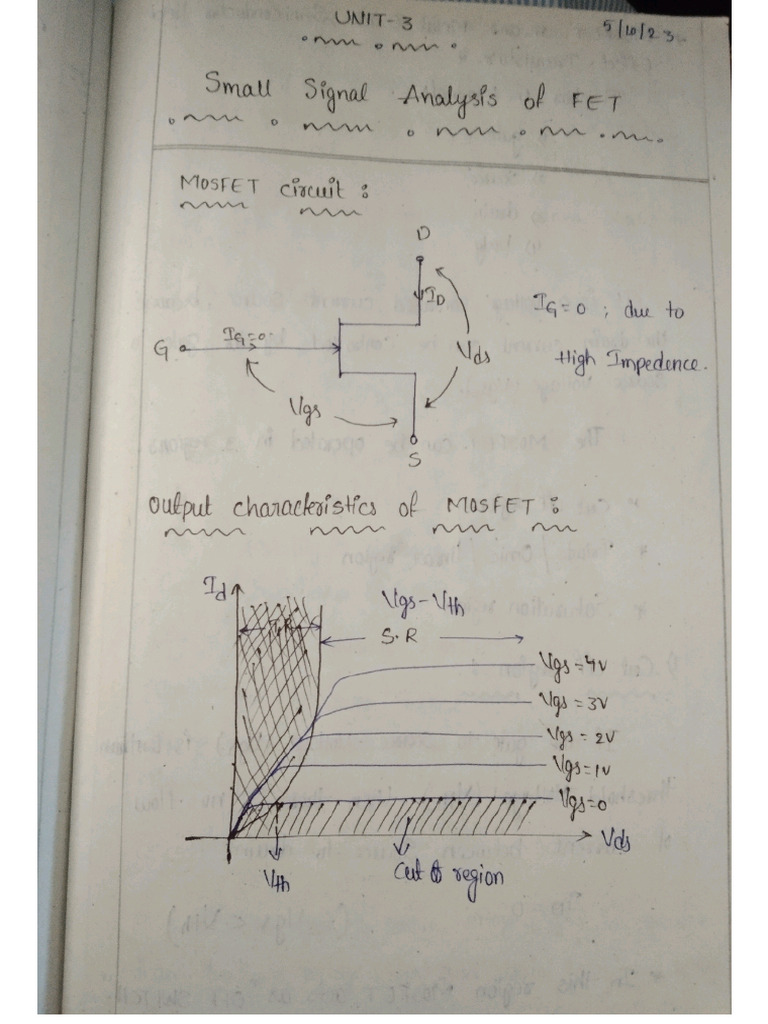 UNIT-3
5/10/23
Small Signal Analysis of FET
MOSFET circuit :
D
ID
IG=0
G
Vds
Vgs
S
IG=0 ; due to
High Impedence.
output characteristics of MOSFET :
Id
Vgs-Vth
S.R
Vgs=4v
Vgs=3v
Vgs=2v
Vgs=1v
Vgs=0
Vds
Vth
Cut off region